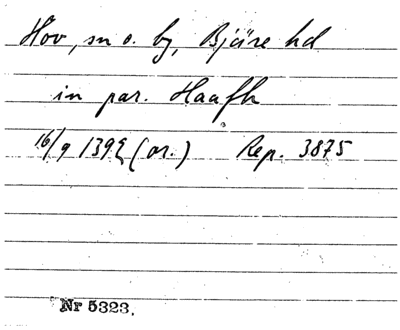 Hov, sn o. by, Bjäre hd
in par. Haafh
16/9 1392 (or.) Rep. 3875
Nr 5323.